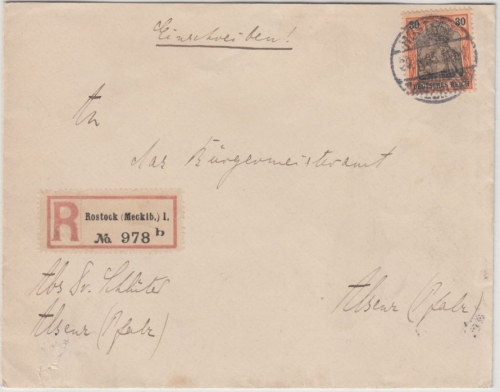 Einschreiben!
30 30
An
das Bürgermeisteramt
R Rostock (Mecklb.) 1.
№ 978 b
Abs Dr. Schlüter
Alsenz (Pfalz)
Alsenz (Pfalz)